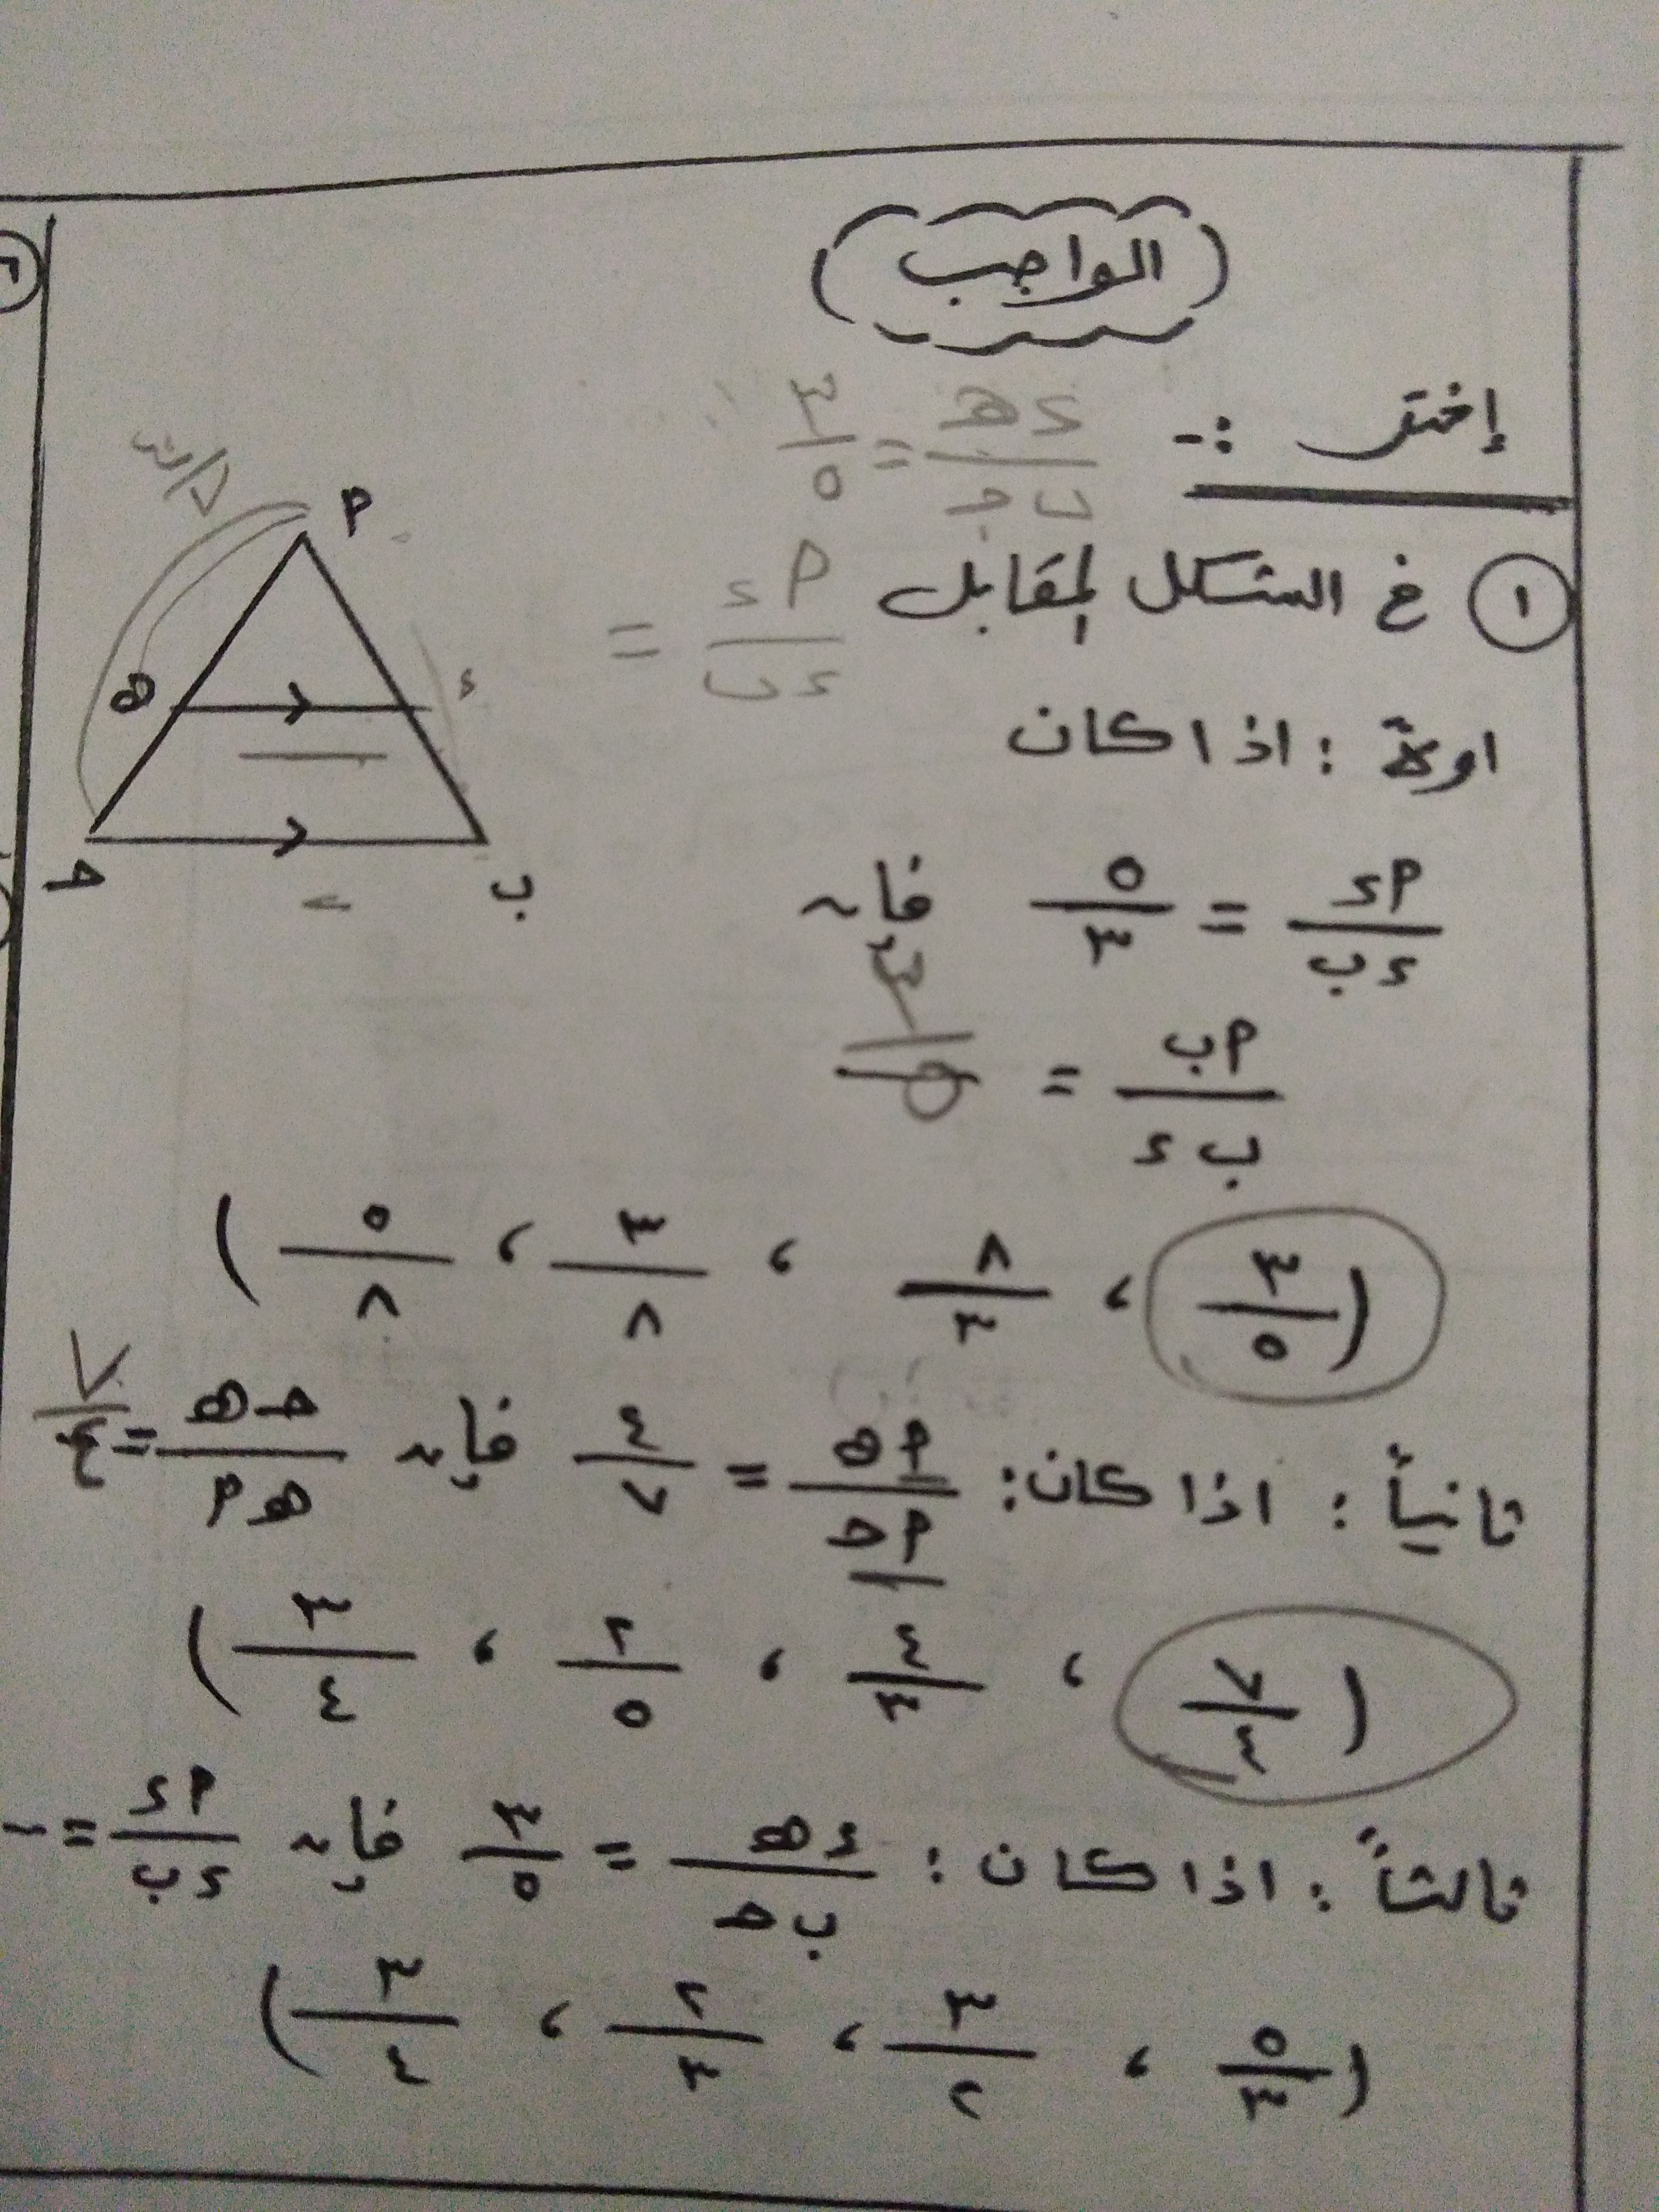 الواجب
إختر :-
٥ه / ب ج = ٣ / ٥
١ في الشكل المقابل
أ د / د ب =
اولاً : اذا كان
أ د / د ب = ٥ / ٣ فإن
أ ب / ب د = ٣ / ٥
( ٣ / ٥ ، ٨ / ٣ ، ٣ / ٨ ، ٥ / ٨ )
ثانياً : اذا كان : أ ه / أ ج = ٤ / ٧ فإن ج ه / ه أ = ٧ / ٤
( ٧ / ٤ ، ٤ / ٣ ، ٢ / ٥ ، ٣ / ٤ )
ثالثاً : اذا كان : د ه / ب ج = ٣ / ٥ فإن أ د / د ب =
( ٥ / ٣ ، ٣ / ٢ ، ٢ / ٣ ، ٣ / ٤ )
أ
ه د
ج ب